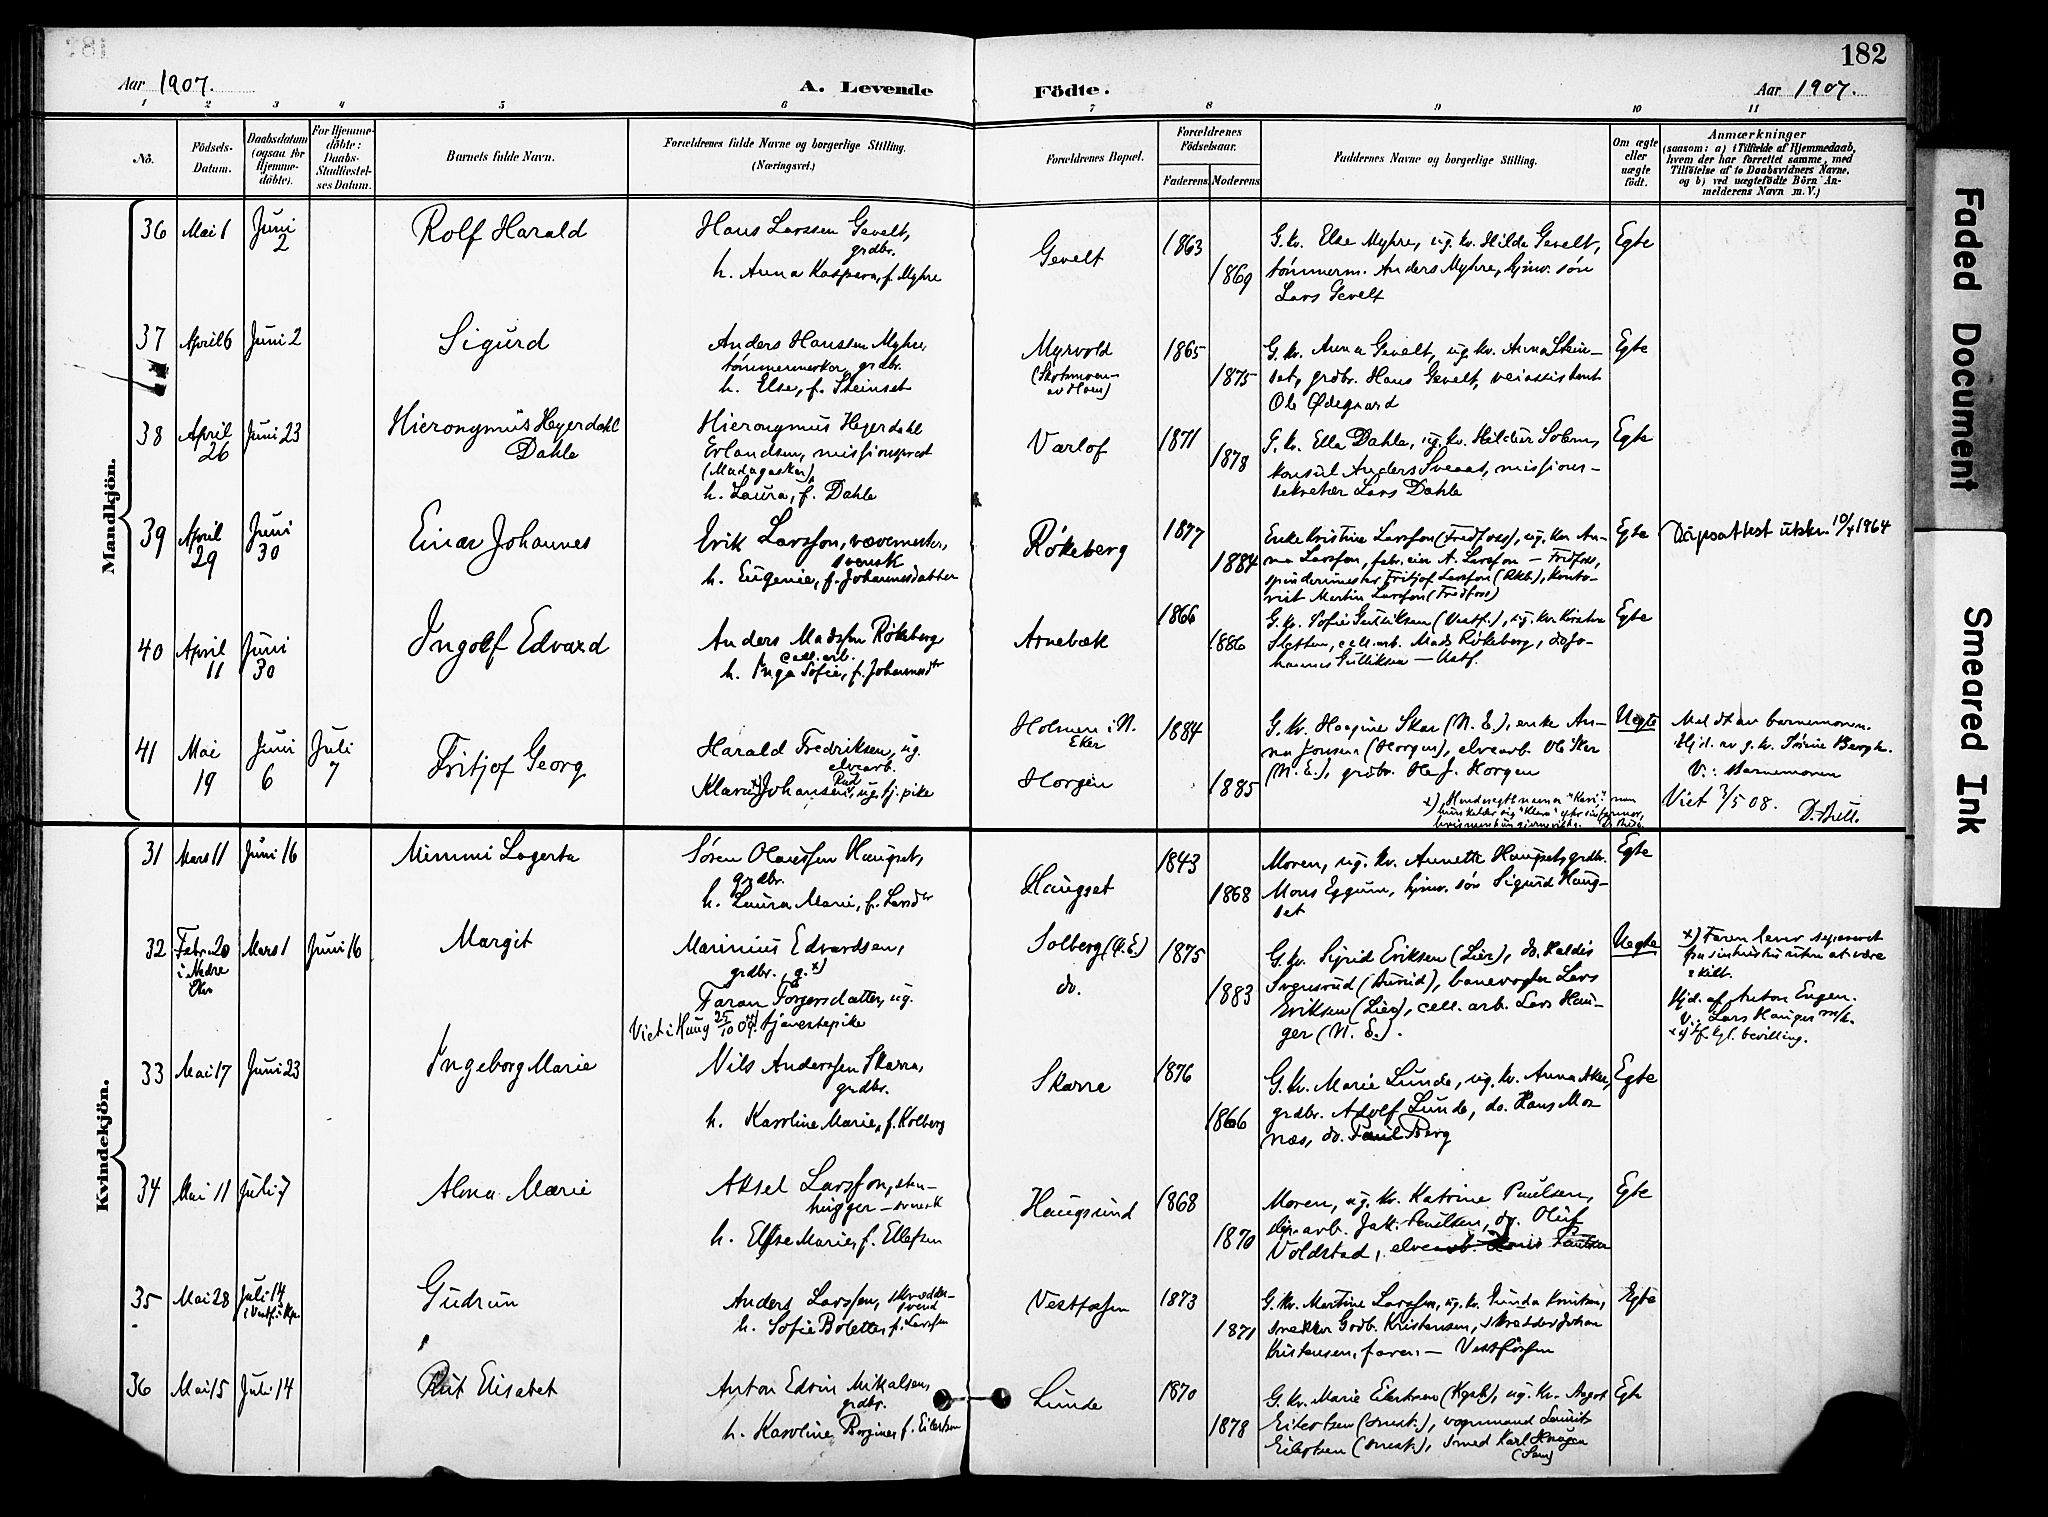 182
Aar 1907.
A. Levende Födte.
Aar 1907.
1 2 3 4 5 6 7 8 9 10 11
No.
Födsels-Datum.
Daabsdatum (ogsaa for Hjemme-döbte).
For Hjemme-döbte: Daabs-Stadfæstel-ses Datum.
Barnets fulde Navn.
Forældrenes fulde Navne og borgerlige Stilling.
(Næringsvei.)
Forældrenes Bopæl.
Forældrenes Födselsaar.
Faderens. Moderens.
Faddernes Navne og borgerlige Stilling.
Om ægte eller uægte födt.
Anmærkninger
(saasom: a) i Tilfælde af Hjemmedaab,
hvem der har forrettet samme, med
Tilföielse af to Daabsvidners Navne,
og b) ved uægtefödte Börn An-
melderens Navn m. V.)
Mandkjön.
36 Mai 1 Juni 2 Rolf Harald
Hans Larssen Gevelt,
grdbr.
h. Anna Kaspara, f. Myhre
Gevelt 1863 1869
G. kv. Else Myhre, ug. kv. Hilda Gevelt,
tømmerm. Anders Myhre, hjmv. søn
Lars Gevelt
Egte
37 April 6 Juni 2 Sigurd
Anders Hanssen Myhre,
tømmermerker, grdbr.
h. Else, f. Steinset
Myrvold
(Skotsmoen
av Hoen)
1865 1875
G. kv. Anna Gevelt, ug. kv. Anna Stein-
set, grdbr. Hans Gevelt, veiassistent
Ole Ødegaard
Egte
38 April 26 Juni 23 Hieronymus Heyerdahl
Dahle
Hieronymus Heyerdahl
Erlandsen, missionsprest
(Madagaskar),
h. Laura, f. Dahle
Varlof 1871 1878
G. kv. Ella Dahle, ug. kv. Hildur Solem,
konsul Anders Sveaas, missions-
sekretær Lars Dahle
Egte
39 April 29 Juni 30 Einar Johannes
Erik Larsson, vævemester,
svensk
h. Eugenie, f. Johannesdatter
Røkeberg 1877 1884
Enke Kristine Larsson (Fredfoss), ug. kv. An-
na Larsson, fabr. eier A. Larsson – Fredfoss,
spinderimester Fritjof Larsson (Rkb.), konto-
rist Martin Larsson (Fredfoss)
Egte
Dåpsattest utskr. 10/4 1964
40 April 11 Juni 30 Ingolf Edvard
Anders Madssen Røkeberg
cell. arb.
h. Inga Sofie, f. Johannesdtr
Arnebæk 1866 1886
G. kv. Sofie Gulliksen (Vestf.), ug. kv. Kirstine
Sletten, cell. arb. Mads Røkeberg, do Jo-
hannes Gulliksen – Vestf.
Egte
41 Mai 19 Juni 6 Juli 7 Fritjof Georg
Harald Fredriksen, ug.
elvearb.
Klara x) Johansen Rud, ug. tj. pike
Holmen i N.
Eker
Horgen
1884 1885
G. kv. Haagine Skar (N. E.), enke An-
na Jonsen (Horgen), elvearb. Ole Eker
(N. E.), grdbr. Ole J. Horgen
Uegte
Meldt av barnemoren.
Hjd. av g. kv. Tørine Bergh.
V.: Barnemoren
Viet 3/5 08. D. Bull.
Kvindekjön.
31 Mars 11 Juni 16 Mimmi Lagerta
Søren Olaussen Haugset,
grdbr.
h. Laura Marie, f. Larsdtr
Haugset 1843 1868
Moren, ug. kv. Annette Haugset, grdbr.
Mons Eggum, hjmv. søn Sigurd Haug-
set
Egte
32 Febr. 20
i Nedre
Eker
Mars 1 Juni 16 Margit
Marinius Edvardsen,
grdbr. g. x)
Taran Torgersdatter, ug.
Viet i Haug 25/10 09. tjenestepike
Solberg (Ø. E.)
do.
1875 1883
G. kv. Sigrid Eriksen (Lier), do. Haldis
Svensrud (Aurud), banevogter Lars
Eriksen (Lier), cell. arb. Lars Hau-
ger (N. E.).
Uegte
x) Faren lever separeret
fra sin hustru uten at være
skilt.
Hjd. af Anton Engen.
V.: Lars Hauger m/h.
x gift kgl. bevilling.
33 Mai 17 Juni 23 Ingeborg Marie
Nils Anderssen Skarra,
grdbr.
h. Karoline Marie, f. Kolberg
Skarre 1876 1866
G. kv. Marie Lunde, ug. kv. Anna Aker,
grdbr. Adolf Lunde, do. Hans Moe
næs, do. Paul Berg
Egte
34 Mai 11 Juli 7 Alma Marie
Aksel Larsson, sten-
hugger – svensk
h. Else Marie, f. Ellefsen
Haugsund 1868 1870
Moren, ug. kv. Katrine Paulsen,
slip. arb. Jak. Paulsen, do. Oluf
Voldstad, elvearb.
Egte
35 Mai 28 Juli 14
i Vestf. Kpl.
Gudrun
Anders Larssen, skrædder-
svend
h. Sofie Bolette, f. Larssen
Vestfossen 1873 1871
G. kv. Martine Larssen, ug. kv. Gunda Knutsen,
snekker Gudb. Kristensen, skrædder Johan
Kristensen, faren – Vestfossen
Egte
36 Mai 15 Juli 14 Rut Elisabet
Anton Edvin Mikalsen,
grdbr.
h. Karoline Bergine, f. Eilertsen
Lunde 1870 1878
G. kv. Marie Eilertsen (Kgsb.), ug. kv. Aagot
Eilertsen (smst.), vognmand Laurits
Eilertsen (smst.), smed Karl Skragen
(Sem)
Egte
Faded Document
Smeared Ink